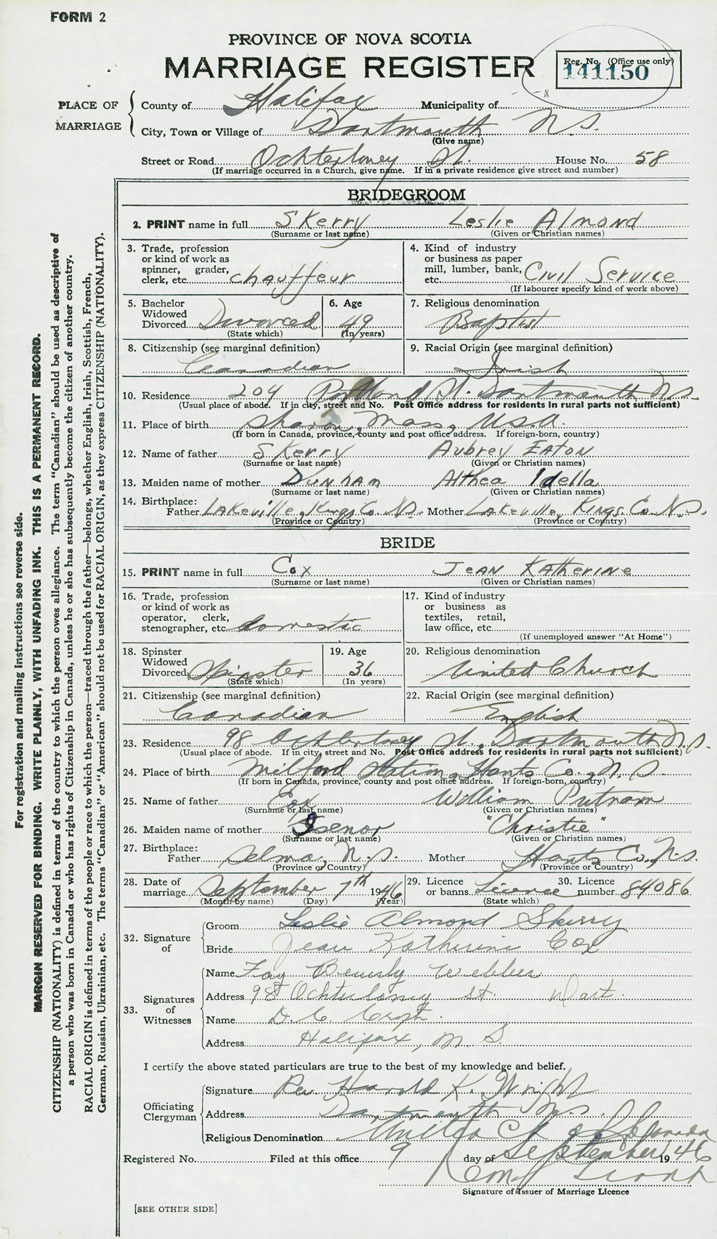 FORM 2
PROVINCE OF NOVA SCOTIA
MARRIAGE REGISTER
Reg. No. (Office use only)
141150
PLACE OF MARRIAGE
County of Halifax Municipality of
City, Town or Village of Dartmouth N.S.
(Give name)
Street or Road Ochterloney St. House No. 58
(If marriage occurred in a Church, give name. If in a private residence give street and number)
BRIDEGROOM
2. PRINT name in full Skerry Leslie Almond
(Surname or last name) (Given or Christian names)
3. Trade, profession or kind of work as spinner, grader, clerk, etc. chauffeur
4. Kind of industry or business as paper mill, lumber, bank, Civil Service
(If labourer specify kind of work above)
5. Bachelor Widowed Divorced Divorced
(State which)
6. Age 49
(In years)
7. Religious denomination
Baptist
8. Citizenship (see marginal definition)
Canadian
9. Racial Origin (see marginal definition)
Irish
10. Residence 204 Portland St. Dartmouth N.S.
(Usual place of abode. If in city, street and No. Post Office address for residents in rural parts not sufficient)
11. Place of birth Sharon, Mass, U.S.A.
(If born in Canada, province, county and post office address. If foreign-born, country)
12. Name of father Skerry Aubrey Eaton
(Surname or last name) (Given or Christian names)
13. Maiden name of mother Dunham Althea Idella
(Surname or last name) (Given or Christian names)
14. Birthplace: Father Lakeville, Kings Co. N.S. Mother Lakeville, Kings Co. N.S.
(Province or Country) (Province or Country)
BRIDE
15. PRINT name in full Cox Jean Katherine
(Surname or last name) (Given or Christian names)
16. Trade, profession or kind of work as operator, clerk, stenographer, etc. domestic
17. Kind of industry or business as textiles, retail, law office, etc.
(If unemployed answer "At Home")
18. Spinster Widowed Divorced Spinster
(State which)
19. Age 36
(In years)
20. Religious denomination
United Church
21. Citizenship (see marginal definition)
Canadian
22. Racial Origin (see marginal definition)
English
23. Residence 98 Ochterloney St., Dartmouth N.S.
(Usual place of abode. If in city, street and No. Post Office address for residents in rural parts not sufficient)
24. Place of birth Milford Station, Hants Co., N.S.
(If born in Canada, province, county and post office address. If foreign-born, country)
25. Name of father Cox William Putnam
(Surname or last name) (Given or Christian names)
26. Maiden name of mother Isenor "Christie"
(Surname or last name) (Given or Christian names)
27. Birthplace: Father Selma, N.S. Mother Hants Co. N.S.
(Province or Country) (Province or Country)
28. Date of marriage September 7th 1946
(Month by name) (Day) (Year)
29. Licence or banns Licence
(State which)
30. Licence number 84086
32. Signature of
Groom Leslie Almond Skerry
Bride Jean Katherine Cox
33. Signatures of Witnesses
Name Fay Beverly Webber
Address 98 Ochterloney St Dart.
Name D.C.
Address Halifax, N.S.
I certify the above stated particulars are true to the best of my knowledge and belief.
Officiating Clergyman
Signature Rev. Harold K. Wright
Address Dartmouth N.S.
Religious Denomination United Ch of Canada
Registered No. Filed at this office 9 day of September 1946
Signature of Issuer of Marriage Licence
[SEE OTHER SIDE]
For registration and mailing instructions see reverse side.
MARGIN RESERVED FOR BINDING. WRITE PLAINLY, WITH UNFADING INK. THIS IS A PERMANENT RECORD.
CITIZENSHIP (NATIONALITY) is defined in terms of the country to which the person owes allegiance. The term "Canadian" should be used as descriptive of
a person who was born in Canada or who has rights of Citizenship in Canada, unless he or she has subsequently become the citizen of another country.
RACIAL ORIGIN is defined in terms of the people or race to which the person—traced through the father—belongs, whether English, Irish, Scottish, French,
German, Russian, Ukrainian, etc. The terms "Canadian" or "American" should not be used for RACIAL ORIGIN, as they express CITIZENSHIP (NATIONALITY).